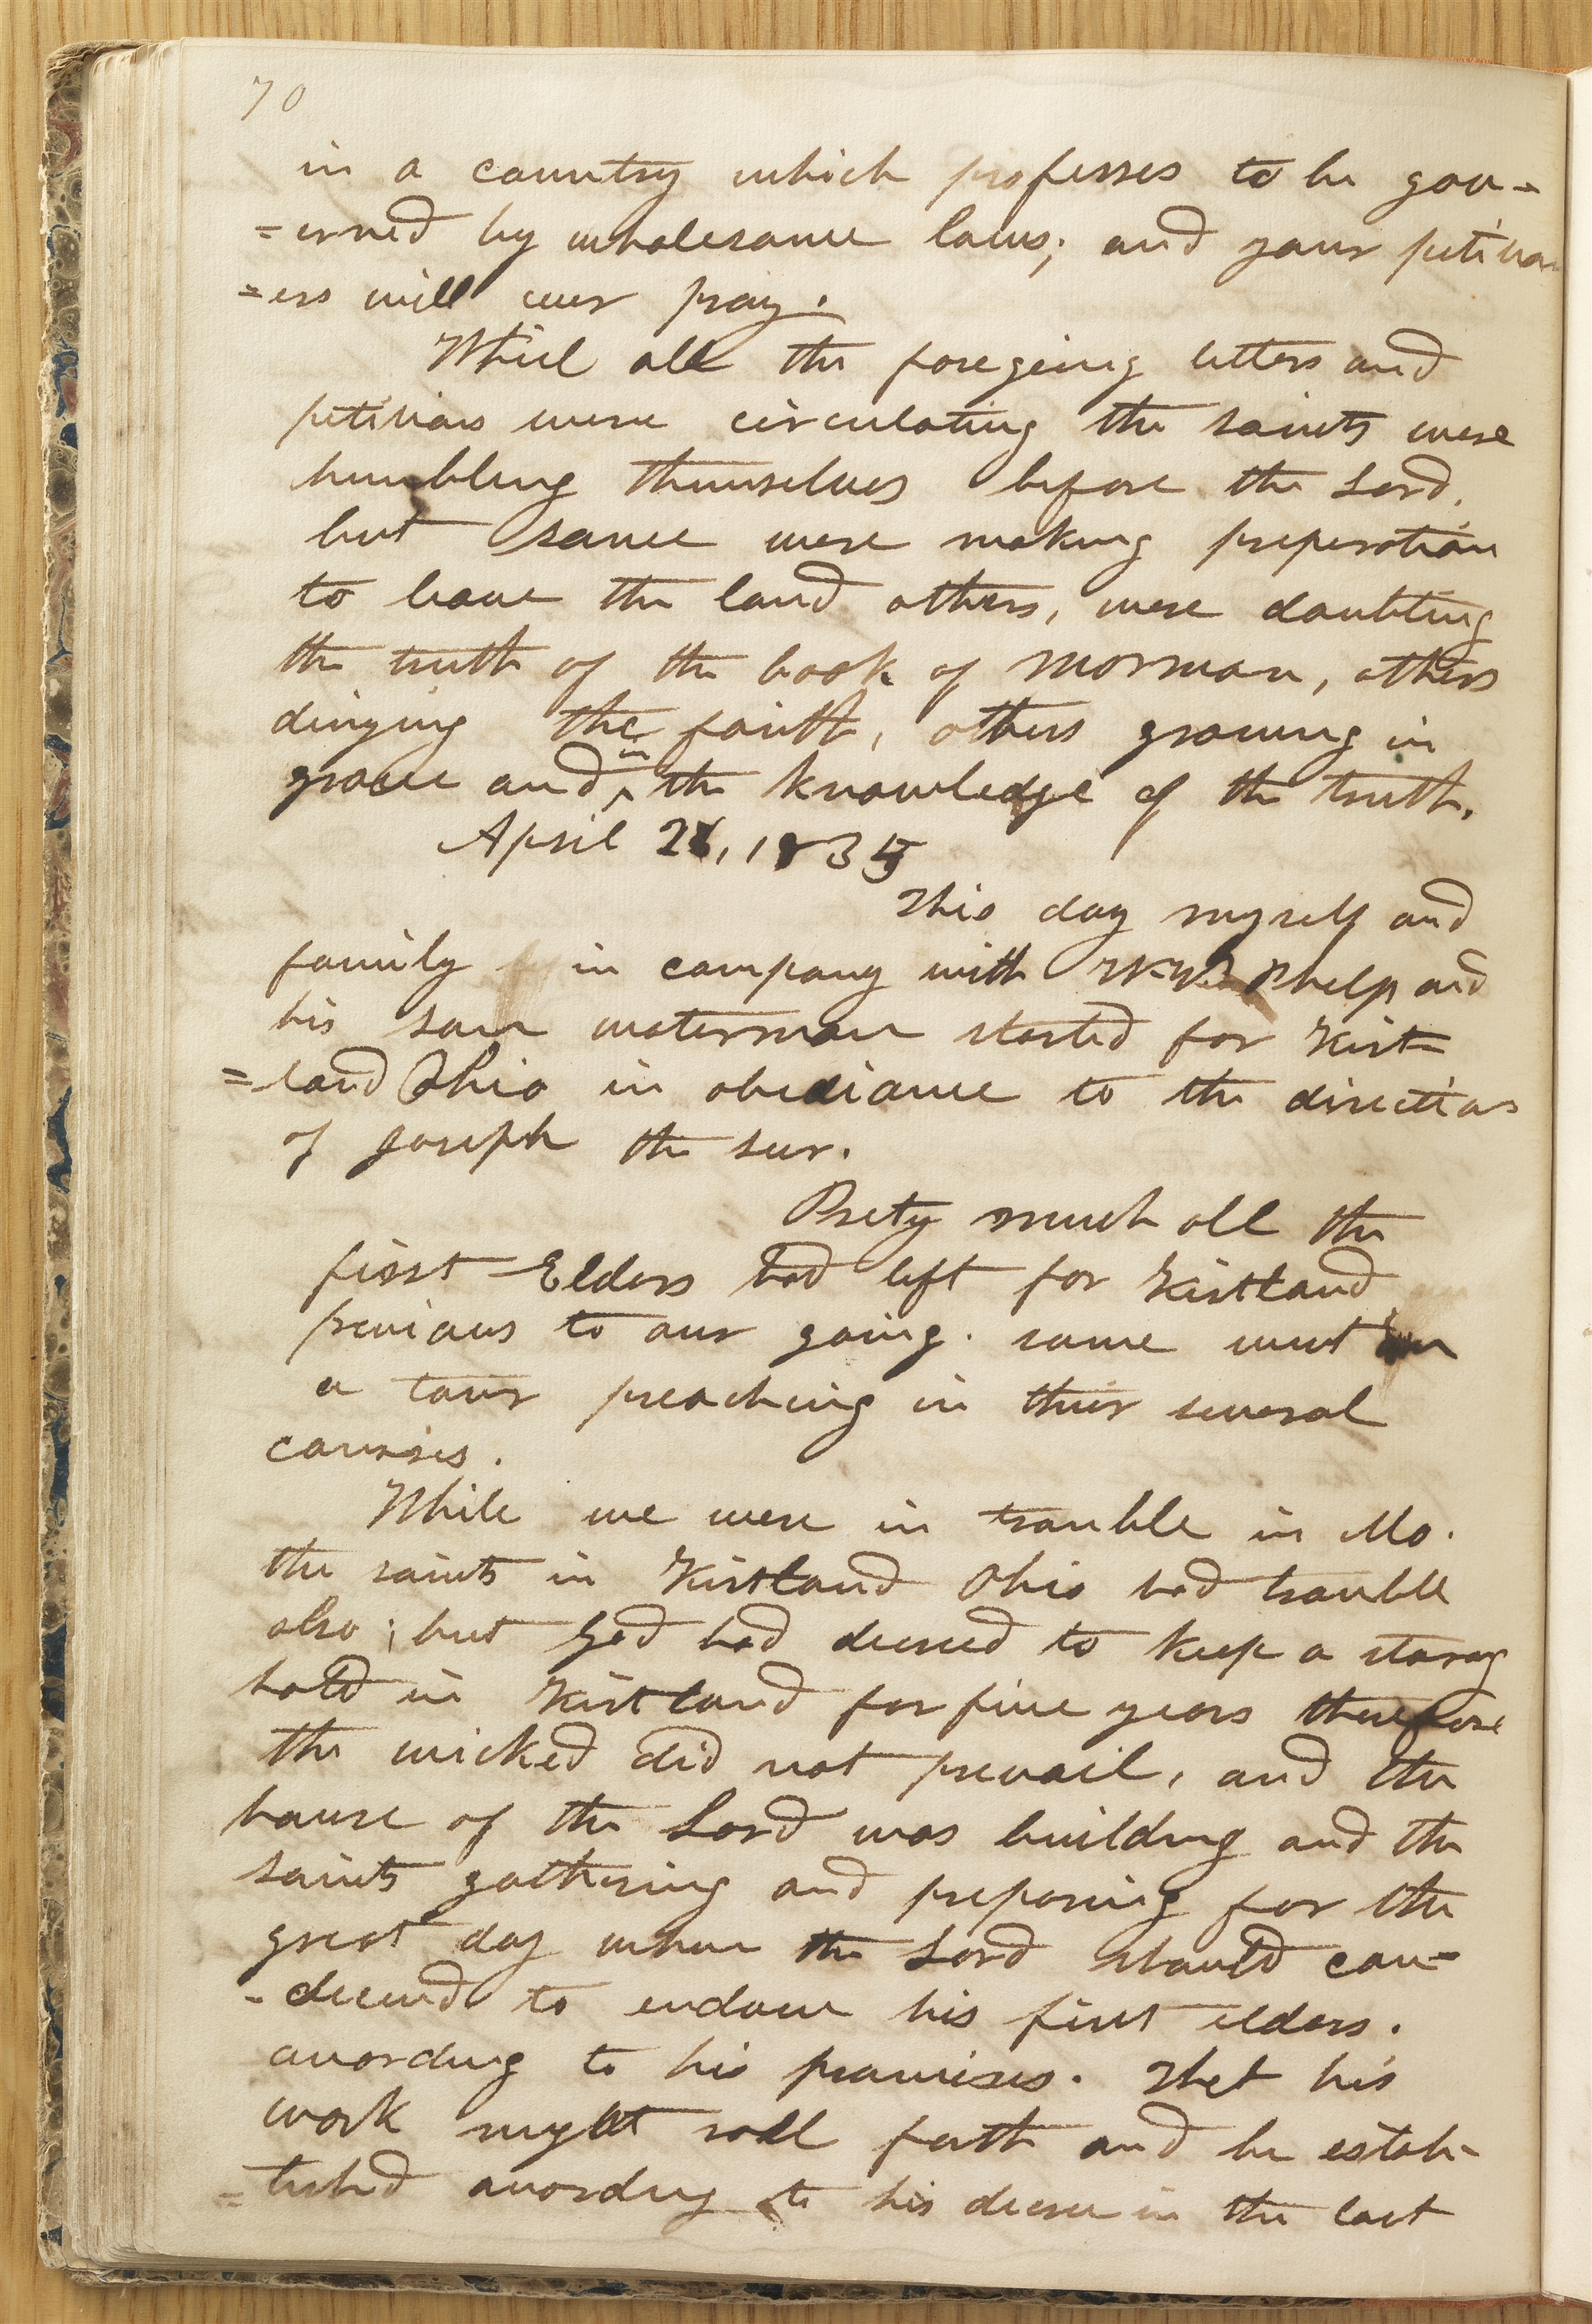 70
in a country which professes to be gov=
=erned by wholesome laws; and your petition
=ers will ever pray.
Whil all the foregoing letters and
petitions were circulating the saints were
humbling themselves before the Lord,
but some were making preperation
to leave the land others, were doubting
the truth of the book of Mormon, others
dinying the faith, others growing in
grace and in the knowledge of the truth.
April 28, 1835
This day myself and
family in company with W. W. Phelps and
his son waterman started for Kirt=
=land Ohio in obediance to the directions
of Joseph the seer.
Prety much all the
first Elders had left for Kirtland
previous to our going. some went on
a tour preaching in thier several
courses.
While we were in trouble in Mo.
the saints in Kirtland Ohio had trouble
also; but God had decreed to keep a strong
hold in Kirtland for five years therefore
the wicked did not prevail, and the
house of the Lord was building and the
saints gathering and preparing for the
great day when the Lord should con=
-decend to endow his first elders.
according to his promises. That his
work might roll forth and be estab-
=lished according to his decree in the last